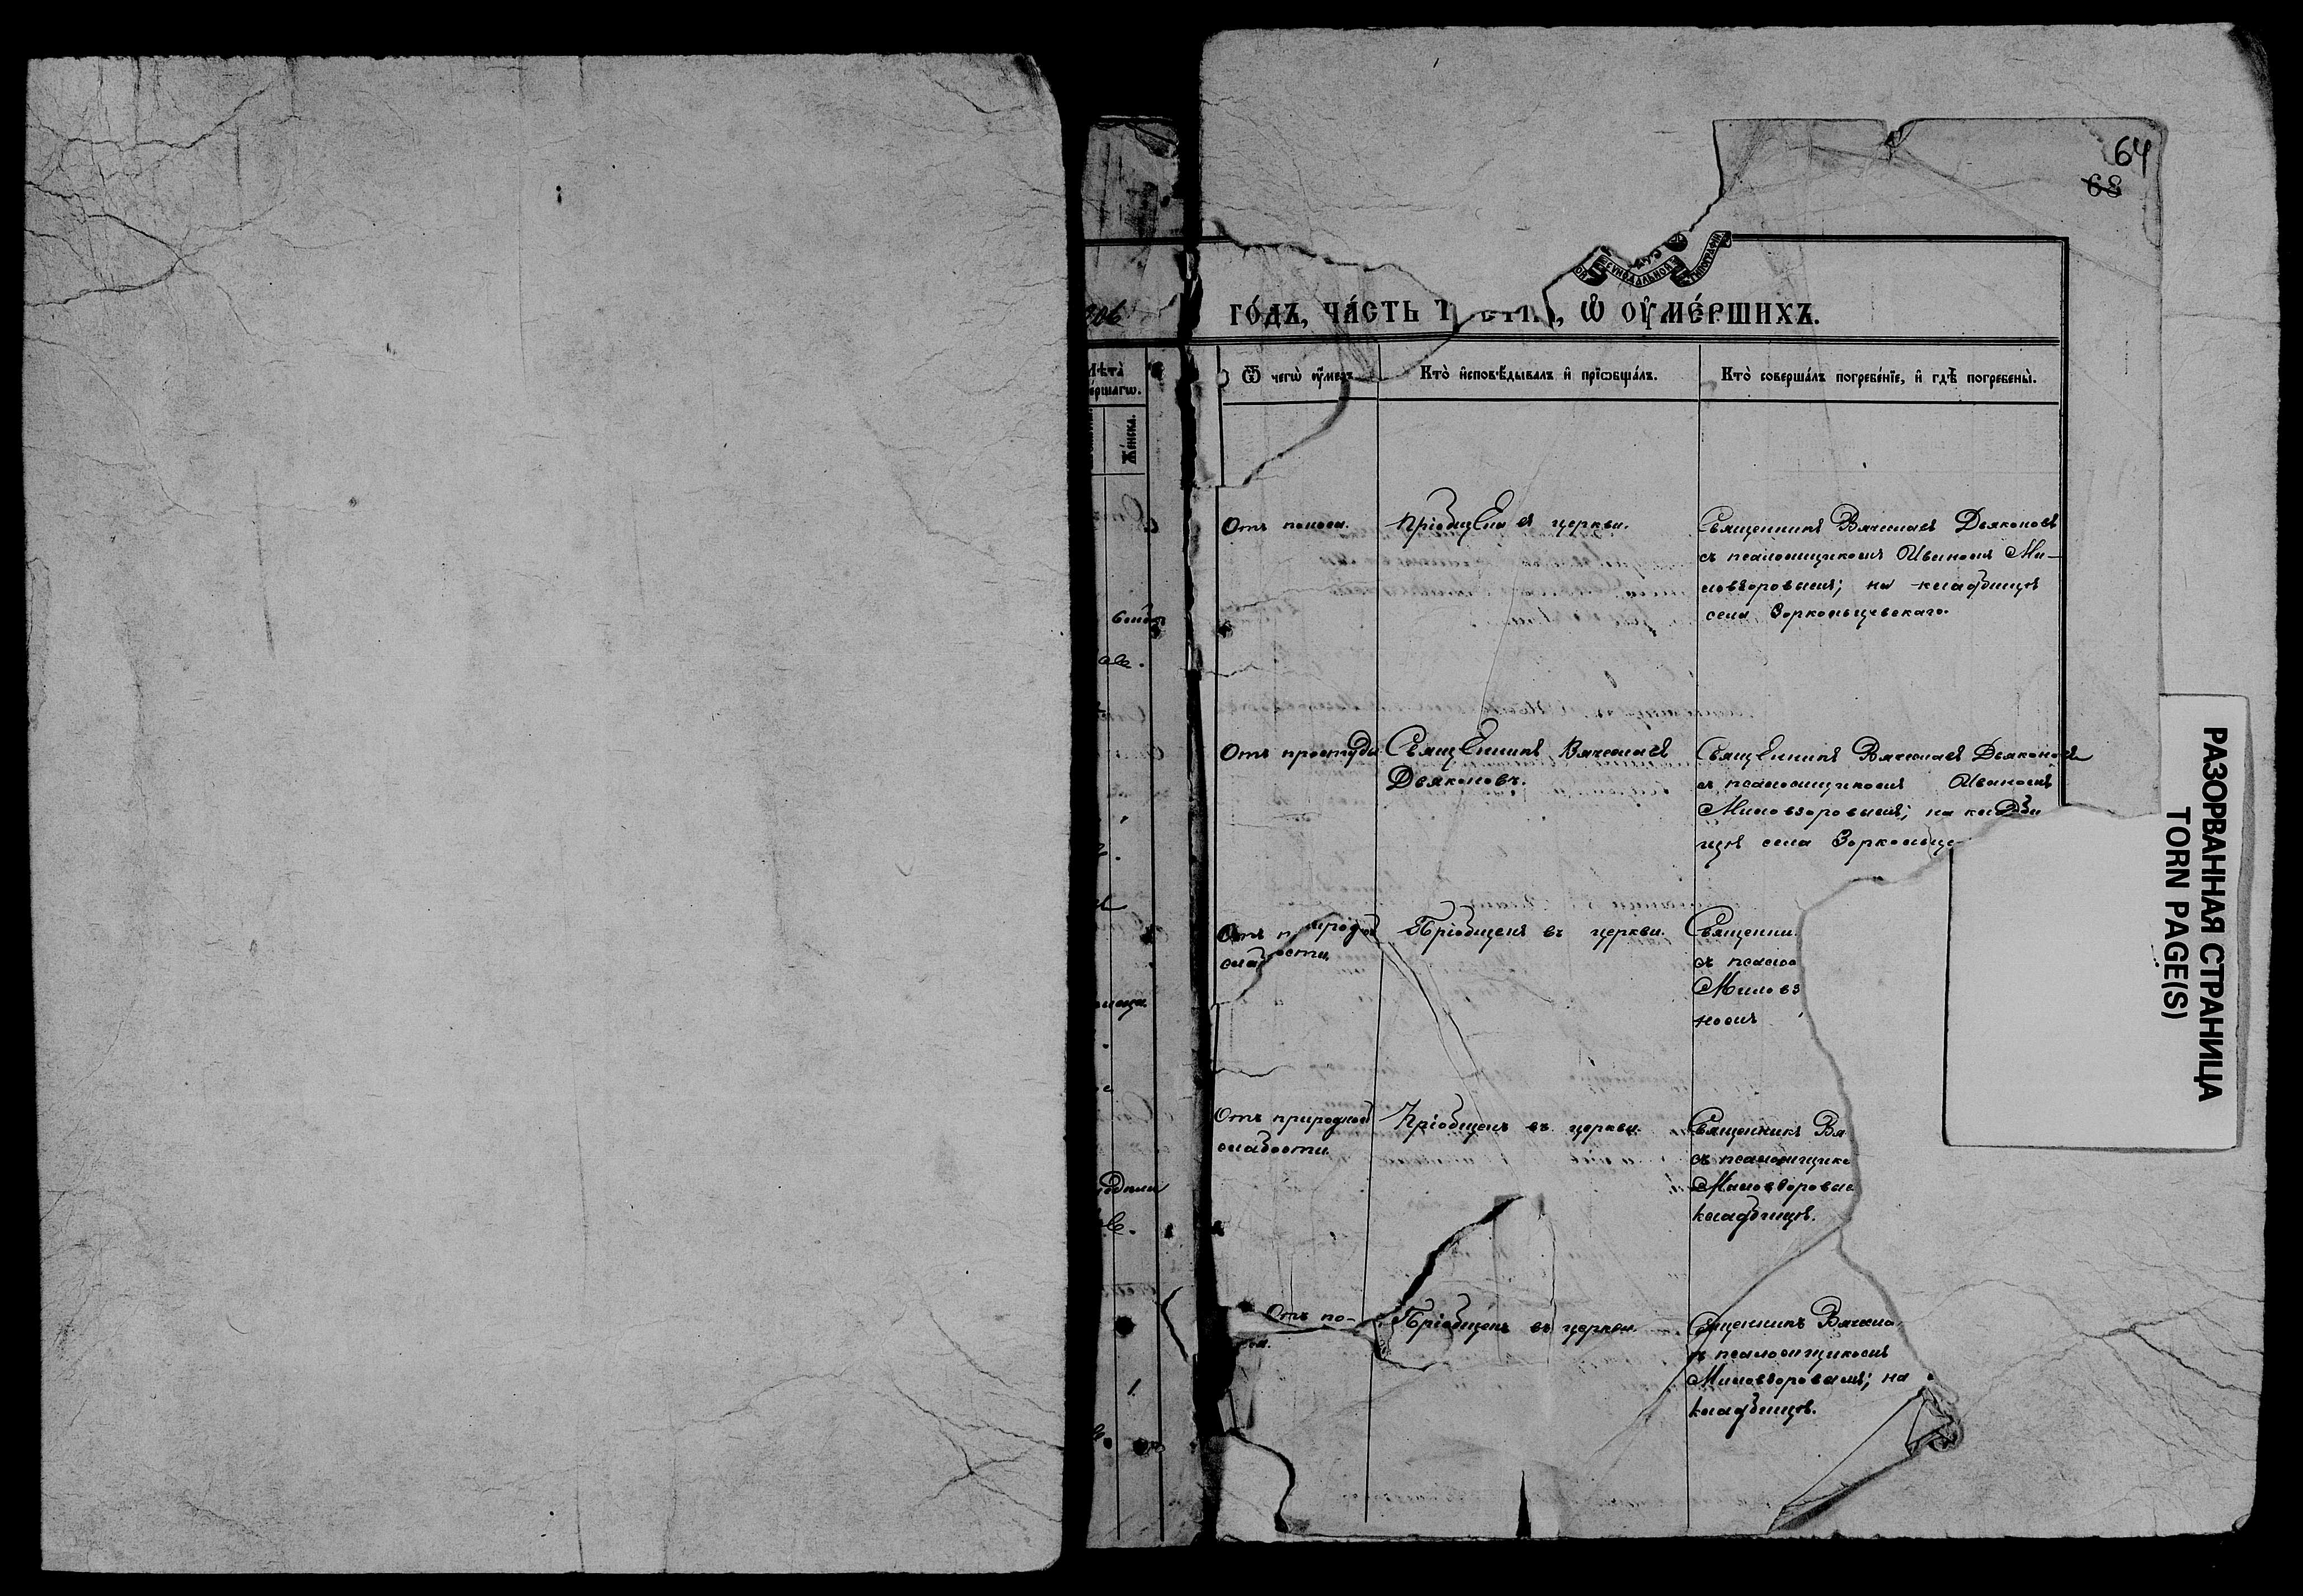 64
68
ГО́ДЪ, ЧА́СТЬ Т , Ѡ ОУМЕ́РШИХЪ.
Лѣта̀
Же́нска.
Ѿ чегѡ̀ оу҆́меръ
Кто̀ и҆сповѣ́дывалъ и҆ прїѡбща́лъ.
Кто̀ соверша́лъ погребе́нїе, и҆ гдѣ̀ погребены̀.
Отъ поноса.
Пріобщена въ церкви.
Священникъ Вячеславъ Дьяконовъ
съ псаломщикомъ Иваномъ Ми-
ловзоровымъ; на кладбищѣ
села Зоркольцевскаго.
Отъ простуды
Священникъ Вячеславъ
Дьяконовъ.
Священникъ Вячеславъ Дьяконовъ
съ псаломщикомъ Иваномъ
Миловзоровымъ; на кладби
щѣ села Зоркольце
Отъ природной
слабости
Пріобщенъ въ церкви.
Священни
съ псало
Миловз
номъ
Отъ природной
слабости
Пріобщенъ въ церкви.
Священникъ Вя
съ псаломщико
Миловзоровым
кладбищѣ.
Отъ по-
Пріобщенъ въ церкви
Священникъ Вячесла
съ псаломщикомъ
Миловзоровымъ; на
кладбищѣ.
РАЗОРВАННАЯ СТРАНИЦА
TORN PAGE(S)